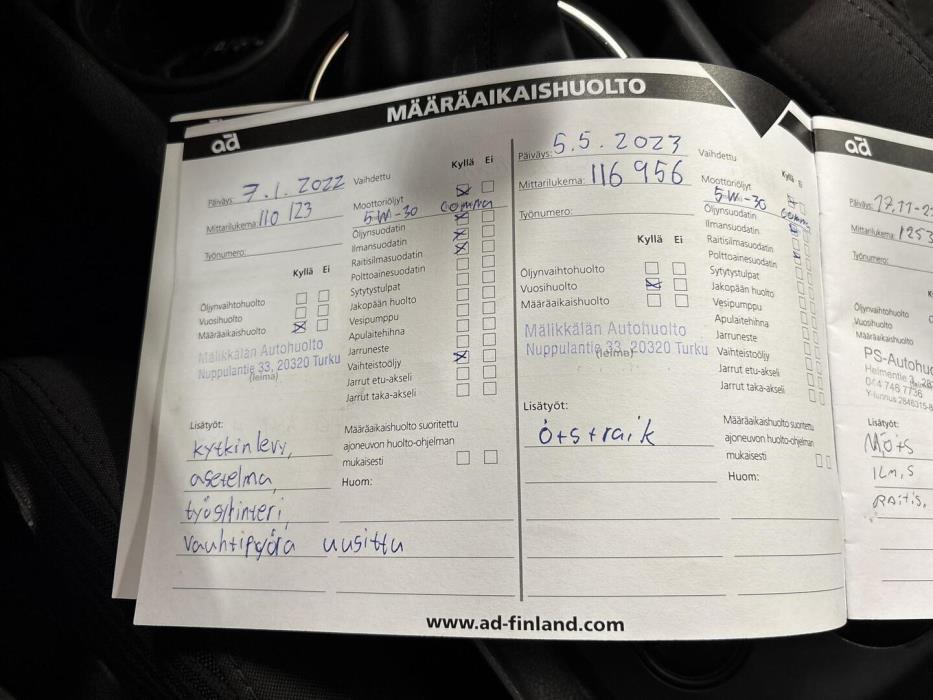 MÄÄRÄAIKAISHUOLTO
ad
Päiväys: 7.1. 2022
Mittarilukema: 110 123
Työnumero:
Kyllä Ei
Öljynvaihtohuolto
Vuosihuolto
Määräaikaishuolto
Mälikkälän Autohuolto
Nuppulantie 33, 20320 Turku
(leima)
Lisätyöt:
kytkinlevy,
asetelma,
työsylinteri,
vauhtipyörä uusittu
Vaihdettu
Kyllä Ei
Moottoriöljyt
5W-30 comma
Öljynsuodatin
Ilmansuodatin
Raitisilmasuodatin
Polttoainesuodatin
Sytytystulpat
Jakopään huolto
Vesipumppu
Apulaitehihna
Jarruneste
Vaihteistoöljy
Jarrut etu-akseli
Jarrut taka-akseli
Määräaikaishuolto suoritettu
ajoneuvon huolto-ohjelman
mukaisesti
Huom:
Päiväys: 5.5. 2023
Mittarilukema: 116 956
Työnumero:
Kyllä Ei
Öljynvaihtohuolto
Vuosihuolto
Määräaikaishuolto
Mälikkälän Autohuolto
Nuppulantie 33, 20320 Turku
(leima)
Lisätyöt:
Vaihdettu
Moottoriöljyt
5W-30 comma
Öljynsuodatin
Ilmansuodatin
Raitisilmasuodatin
Polttoainesuodatin
Sytytystulpat
Jakopään huolto
Vesipumppu
Apulaitehihna
Jarruneste
Vaihteistoöljy
Jarrut etu-akseli
Jarrut taka-akseli
Määräaikaishuolto suoritettu
ajoneuvon huolto-ohjelman
mukaisesti
Huom:
www.ad-finland.com
ad
Päiväys: 17.11-2
Mittarilukema: 1253
Työnumero:
Öljynvaihtohuolto
Vuosihuolto
Määräaikaishuolto
PS-Autohuo
Lisätyöt:
MÖ+S
ILM.S
RAITIS.